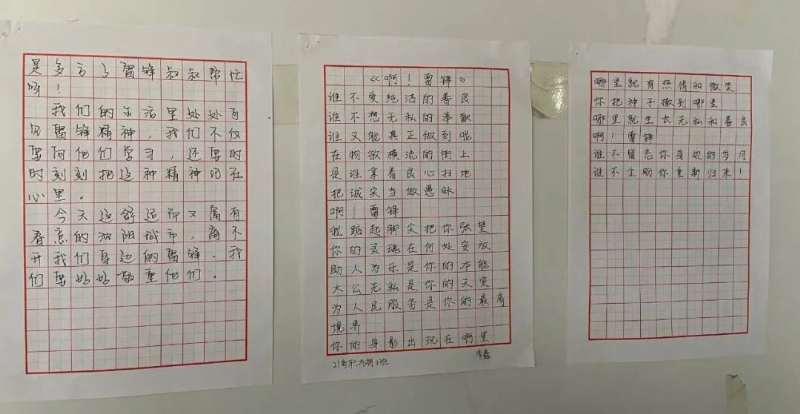 是多亏了雷锋叔叔帮忙
呀！
我们的生活里处处可
见雷锋精神，我们不仅
要向他们学习，还要时
时刻刻把这种精神记在
心里。
今天这舒适而又富有
春意的城市，离不
开我们身边的雷锋．我
们要好好敬重他们．
《啊！雷锋》
谁不爱纯洁的善良
谁不想无私的奉献
谁又能真正做到呢
在物欲横流的街上
是谁拿着良心扫地
把诚实当做愚昧
啊！雷锋
我踮起脚尖把你张望
你的灵魂在何处安放
助人为乐是你的本能
大公无私是你的天赏
为人民服务是你的最高
境界
你的身影出现在哪里
21高职 1班
李鑫
哪里就有热情和微笑
你把种子撒到哪里
哪里就生长无私和善良
啊！雷锋
谁不留恋你身边的时间
谁不企盼你重新归来！